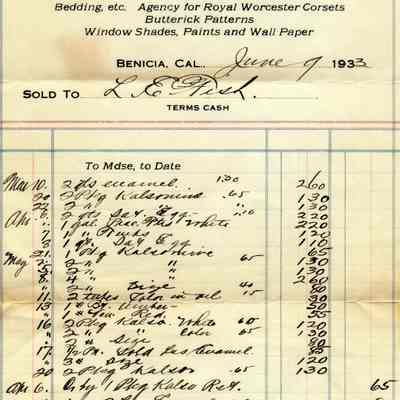 Bedding, etc. Agency for Royal Worcester Corsets
Butterick Patterns
Window Shades, Paints and Wall Paper
BENICIA, CAL. June 9 1933
SOLD TO L. E. Fish.
TERMS CASH
To Mdse, to Date
Mar 10. 2 qts enamel 1.30 2 60
20 2 Pkg Kalsomine .65 1 30
22 2 " " " 1 30
Apr 2 qts Egg 1.10 2 20
" 1 gal White 2 20
7 1 " 1 20
8 1 qt. Egg 1 10
21. 1 Pkg Kalsomine 65
May 2. 2 " " 65 1 30
5. 2 " " 1 30
8. " " 2 60
" 2 " Size 40 80
11. 2 tubes Color in oil 15 30
13
" 1 " Red. 35
16 2 Pkg Kalso. White 60 1 20
" 2 " " Color 65 1 30
" 2 " Size 80
17. 1/2 Pt. Gold Enamel
" 3 " Size 1 20
20 2 Pkg Kalsom 65 1 30
Apr 6. Cr by 1 Pkg Kalso Ret. 65